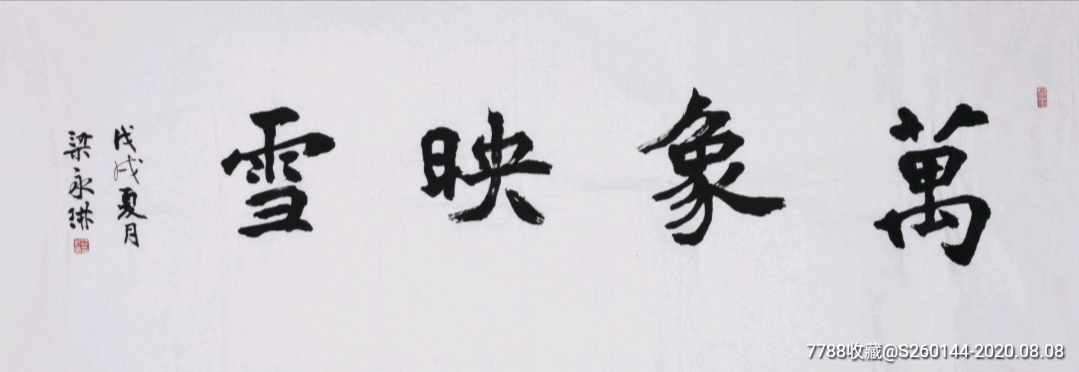 萬象映雪
戊戌夏月
梁永琳
7788收藏@S260144-2020.08.08